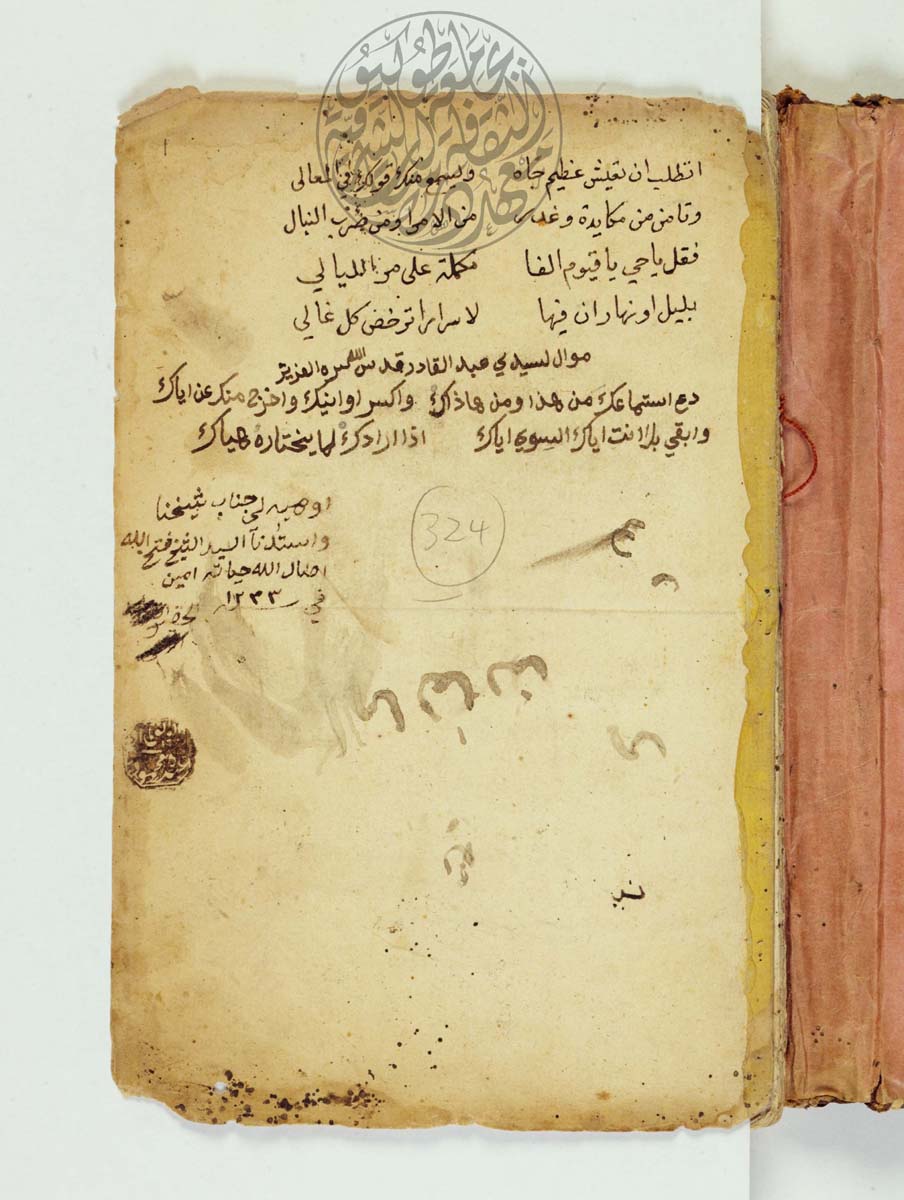 اتطلب ان تعيش عظيم جاه ويسمع منك قولك في المعالى
وتامن من مكايدة وغدر من الامرا ومن ضرب النبال
فقل ياحي ياقيوم الفا مكملة على مر الليالي
بليل او نهار ان فيها لاسرارا ترخض كل غالي
موال لسيدي عبد القادر قدس الله سره العزيز
دع استماعك من هذا ومن هاذاك واكسر اوانيك واخرج منك عن اياك
وابقي بلا انت اياك السوي اياك اذا ارادك لما يختاره هياك
اوهبه لي جناب شيخنا
واستاذنا السيد الشيخ فتح الله
اطال الله حياته امين
في ١٢٣٣
324